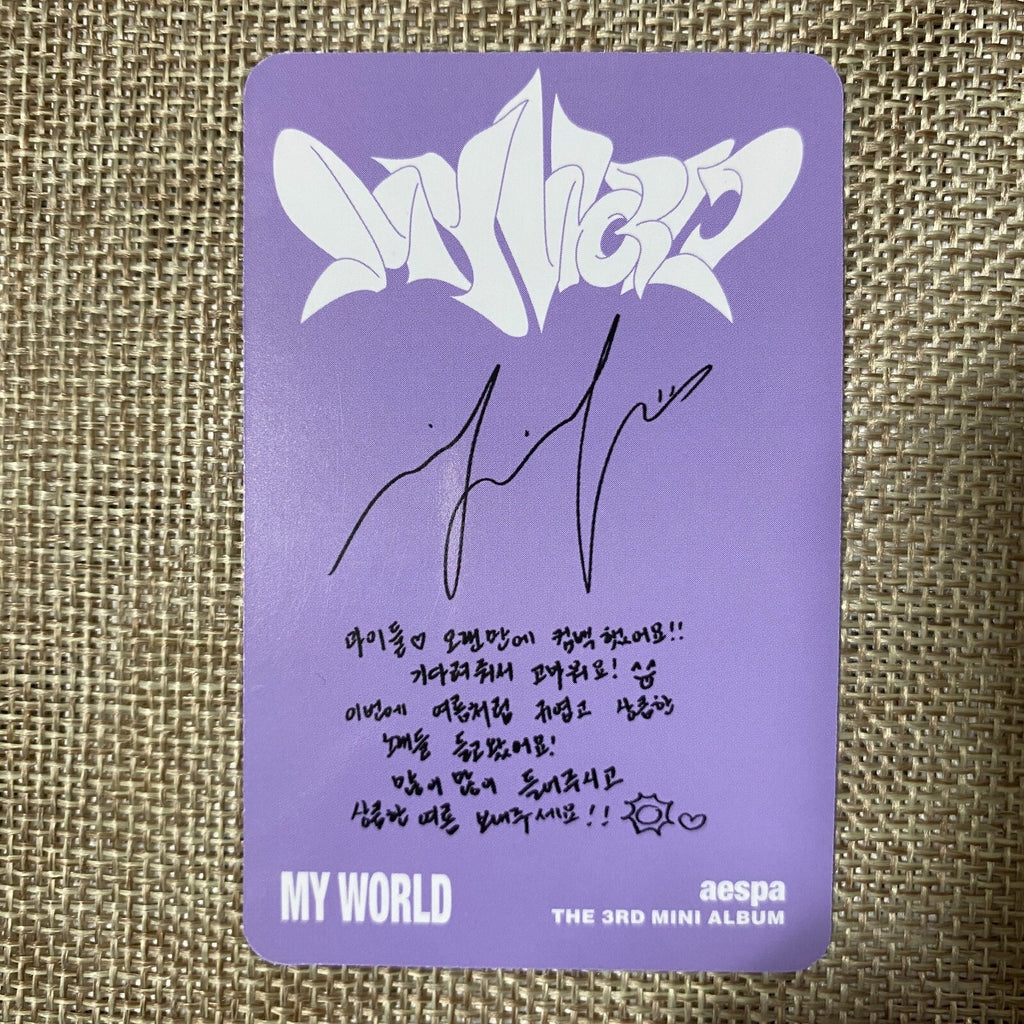 MY WORLD
마이들♡ 오랜만에 컴백 했어요!!
기다려줘서 고마워요! ^^
이번에 여름처럼 귀엽고 상큼한
노래들 들고 왔어요!
많이 많이 들어주시고
상큼한 여름 보내주세요!!
MY WORLD
aespa
THE 3RD MINI ALBUM